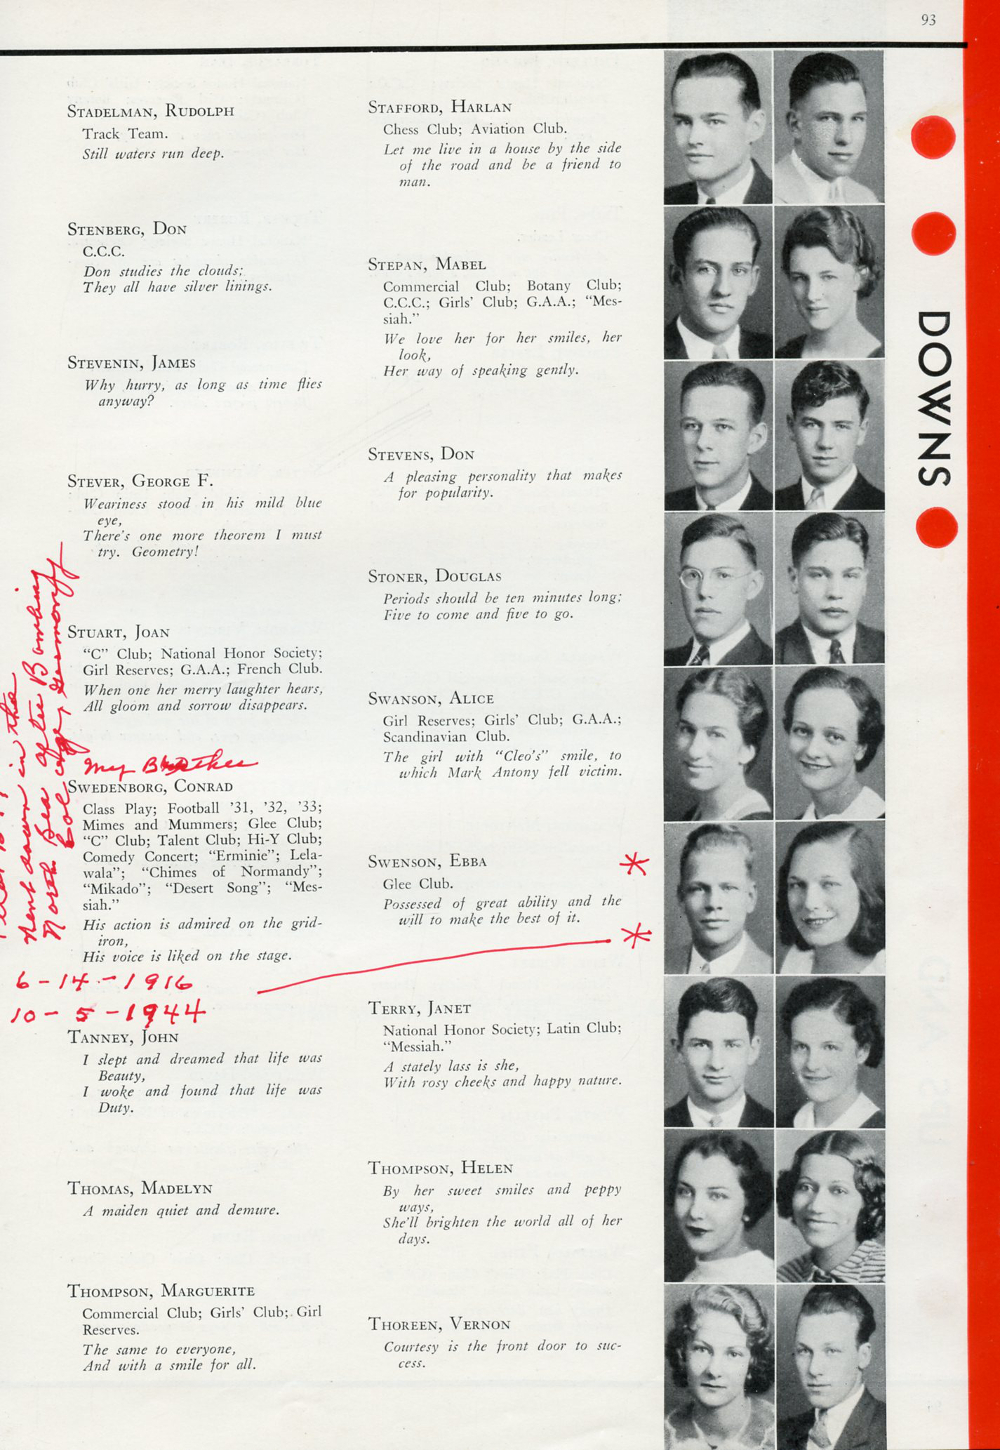 93
STADELMAN, RUDOLPH
Track Team.
Still waters run deep.
STENBERG, DON
C.C.C.
Don studies the clouds;
They all have silver linings.
STEVENIN, JAMES
Why hurry, as long as time flies
anyway?
STEVER, GEORGE F.
Weariness stood in his mild blue
eye,
There's one more theorem I must
try. Geometry!
STUART, JOAN
"C" Club; National Honor Society;
Girl Reserves; G.A.A.; French Club.
When one her merry laughter hears,
All gloom and sorrow disappears.
My Brother
SWEDENBORG, CONRAD
Class Play; Football '31, '32, '33;
Mimes and Mummers; Glee Club;
"C" Club; Talent Club; Hi-Y Club;
Comedy Concert; "Erminie"; Lela-
wala"; "Chimes of Normandy";
"Mikado"; "Desert Song"; "Mes-
siah."
His action is admired on the grid-
iron,
His voice is liked on the stage.
went down in the
North Sea after Bombing
Cologne, Germany
6-14-1916
10-5-1944
TANNEY, JOHN
I slept and dreamed that life was
Beauty,
I woke and found that life was
Duty.
THOMAS, MADELYN
A maiden quiet and demure.
THOMPSON, MARGUERITE
Commercial Club; Girls' Club; Girl
Reserves.
The same to everyone,
And with a smile for all.
STAFFORD, HARLAN
Chess Club; Aviation Club.
Let me live in a house by the side
of the road and be a friend to
man.
STEPAN, MABEL
Commercial Club; Botany Club;
C.C.C.; Girls' Club; G.A.A.; "Mes-
siah."
We love her for her smiles, her
look,
Her way of speaking gently.
STEVENS, DON
A pleasing personality that makes
for popularity.
STONER, DOUGLAS
Periods should be ten minutes long;
Five to come and five to go.
SWANSON, ALICE
Girl Reserves; Girls' Club; G.A.A.;
Scandinavian Club.
The girl with "Cleo's" smile, to
which Mark Antony fell victim.
SWENSON, EBBA
Glee Club.
Possessed of great ability and the
will to make the best of it.
TERRY, JANET
National Honor Society; Latin Club;
"Messiah."
A stately lass is she,
With rosy cheeks and happy nature.
THOMPSON, HELEN
By her sweet smiles and peppy
ways,
She'll brighten the world all of her
days.
THOREEN, VERNON
Courtesy is the front door to suc-
cess.
DOWNS